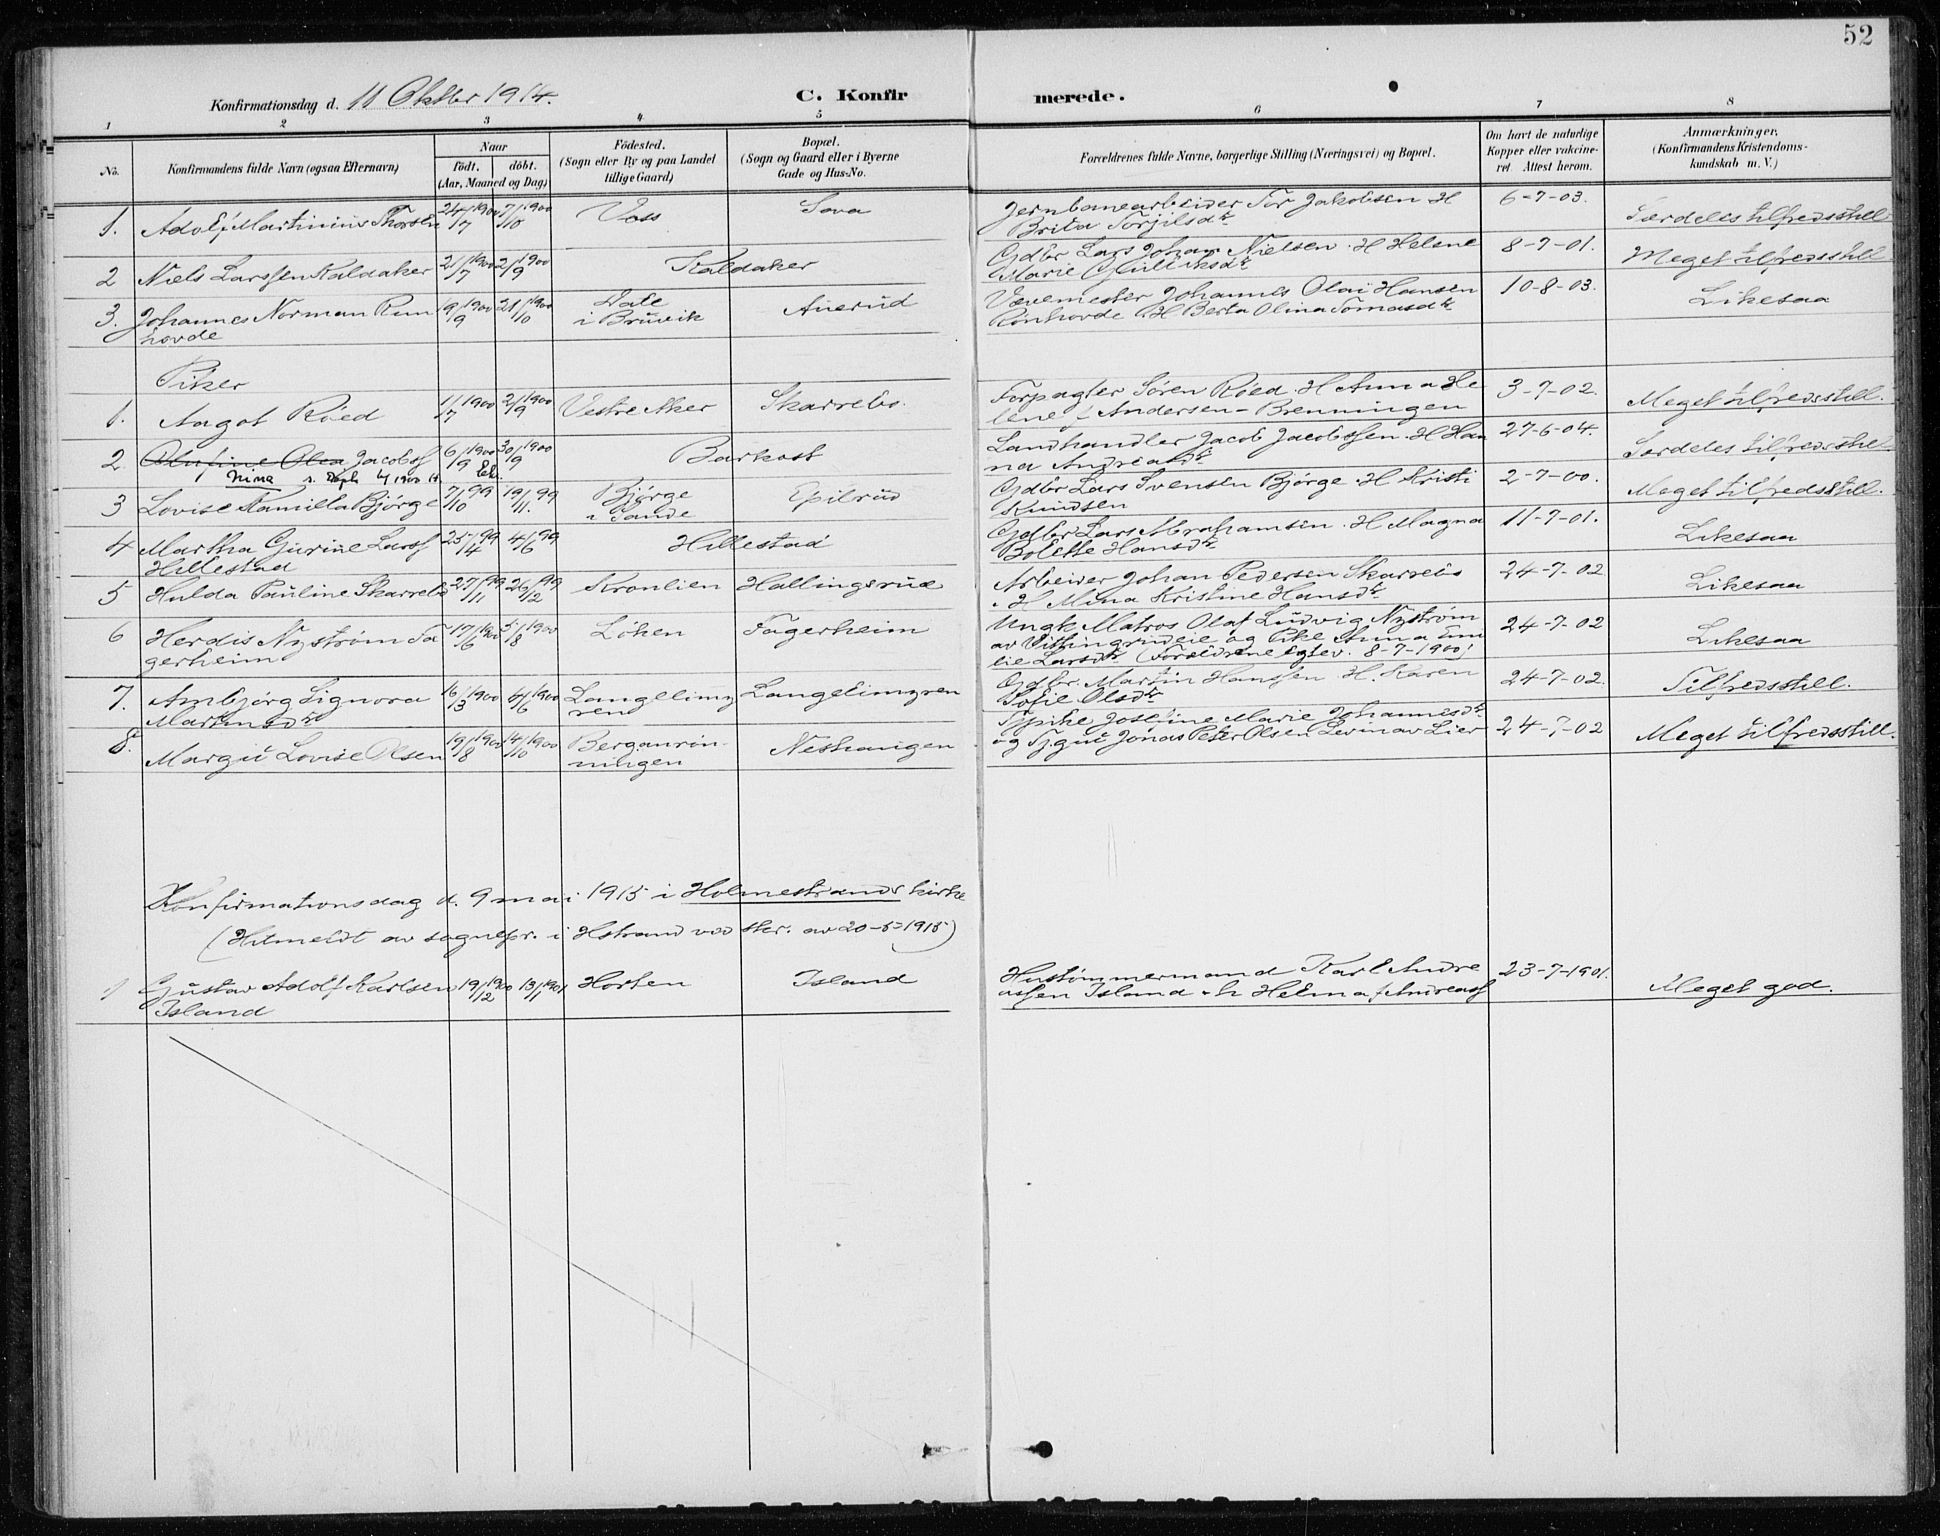 52
Konfirmationsdag d. 11 Oktber 1914.
C. Konfirmerede.
1 2 3 4 5 6 7 8
No.
Konfirmandens fulde Navn (ogsaa Efternavn)
Naar
födt. döbt.
(Aar, Maaned og Dag)
Födested.
(Sogn eller By og paa Landet
tillige Gaard)
Bopæl.
(Sogn og Gaard eller i Byerne
Gade og Hus-No.
Forældrenes fulde Navne, borgerlige Stilling (Næringsvei) og Bopæl.
Om havt de naturlige
Kopper eller vakcine-
ret Attest herom.
Anmærkninger.
(Konfirmandens Kristendoms-
kundskab m. V.)
1. Adolf Martinius Thorsen 24/7 1900 7/10 1900 Voss Sova Jernbanearbeider Tor Jakobsen H 6-7-03. Særdeles tilfredsstill.
Brita Torjilsdtr
2 Niels Larssen Kaldaker 21/7 1900 2/9 1900 Kaldaker Gdbr Lars Johan Nielsen H Helene 8-7-01. Meget tilfredsstill
Marie Gulliksdtr
3. Johannes Norman Røn 9/9 1900 21/10 1900 Dale Auerud Vævemester Johannes Olai Hansen 10-8-03. Likesaa
hovde i Bruvik Rønhovde H Berta Olina Tomasdtr
Piker
1. Aagot Røed 11/7 1900 2/9 1900 Vestre Aker Skarrebo. Forpagter Søren Røed H Anna He 3-7-02. Meget tilfredsstill.
lene f Andersen-Brenningen
2 Olufine Olea Jacobsf 6/9 1900 30/9 1900 Barkost Landhandler Jacob Jacobssen H Han 27-6-04. Særdeles tilfredsstill
Nina na Andreasdtr
3 Lovise Kamilla Bjørge 7/10 99 19/11 99 Bjørge Epilrud Gdbr Lars Svensen Bjørge H Kristi 2-7-00. Meget tilfredsstill.
i Sande Knudsen
4 Martha Gurine Larsf 25/4 99 4/6 99 Hillestad Gdbr Lars Abrahamsen H Magna 11-7-01. Likesaa
Hillestad Bolette Hansdtr
5 Hulda Pauline Skarrebo 27/11 99 26/12 99 Kronlien Hallingsrud Arbeider Johan Pedersen Skarrebo 24-7-02 Likesaa
H Mina Kristine Hansdtr
6 Herdis Nystrøm Fa 17/6 1900 5/8 1900 Løken Fagerheim Ungk Matros Olaf Ludvig Nystrøm 24-7-02 Likesaa
gerheim av Vittingrudeie og Pike Anna Emi
lie Larsdtr (Forældrene egtev. 8-7-1900)
7. Ambjørg Signora 16/3 1900 4/6 1900 Langelimy Langelimyren Gdbr Martin Hanssen H. Karen 24-7-02. Tilfredsstill.
Martinsdtr rene Sofie Olsdtr
8. Margit Lovise Olsen 19/8 1900 14/10 1900 Berganrøn Neshaugen Tjpike Josefine Marie Johannesdtr 24-7-02 Meget tilfredsstill.
ningen og Tjgut Jonas Peter Olsen Levin av Lier
Konfirmationsdag d. 9 mai 1915 i Holmestrands kirke
(Hitmeldt av sognepr. i Hstrand ved skr. av 20-5-1915)
1 Gustav Adolf Karlsen 19/12 1900 13/1 1901 Horten Island Hustømmermand Karl Andre 23-7-1901. Meget god.
Island assen Island h Helma f Andreasf